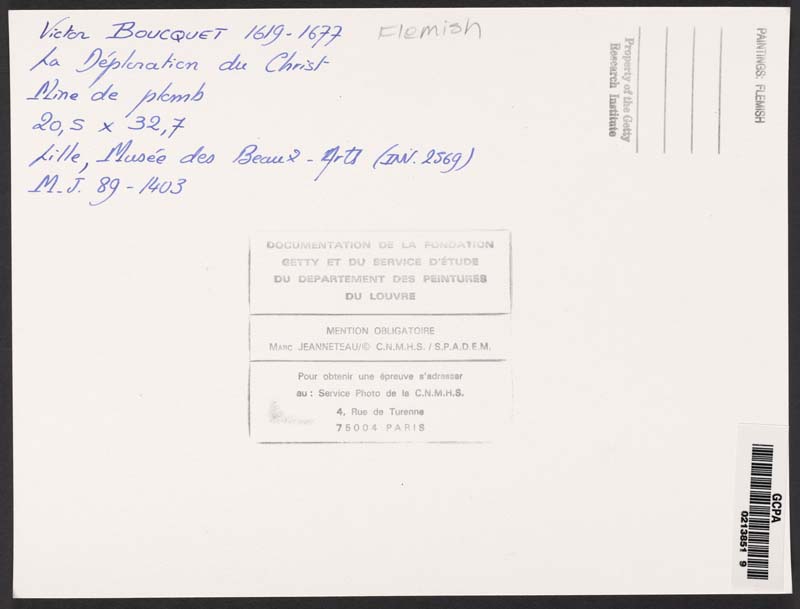 Victor BOUCQUET 1619-1677 Flemish
La Déploration du Christ
Mine de plomb
20,5 x 32,7
Lille, Musée des Beaux-Arts (INV. 2569)
M.J. 89-1403
Property of the Getty
Research Institute
PAINTINGS: FLEMISH
DOCUMENTATION DE LA FONDATION
GETTY ET DU SERVICE D'ÉTUDE
DU DEPARTEMENT DES PEINTURES
DU LOUVRE
MENTION OBLIGATOIRE
MARC JEANNETEAU/© C.N.M.H.S. / S.P.A.D.E.M.
Pour obtenir une épreuve s'adresser
au : Service Photo de la C.N.M.H.S.
4, Rue de Turenne
75004 PARIS
GCPA
0213851 9